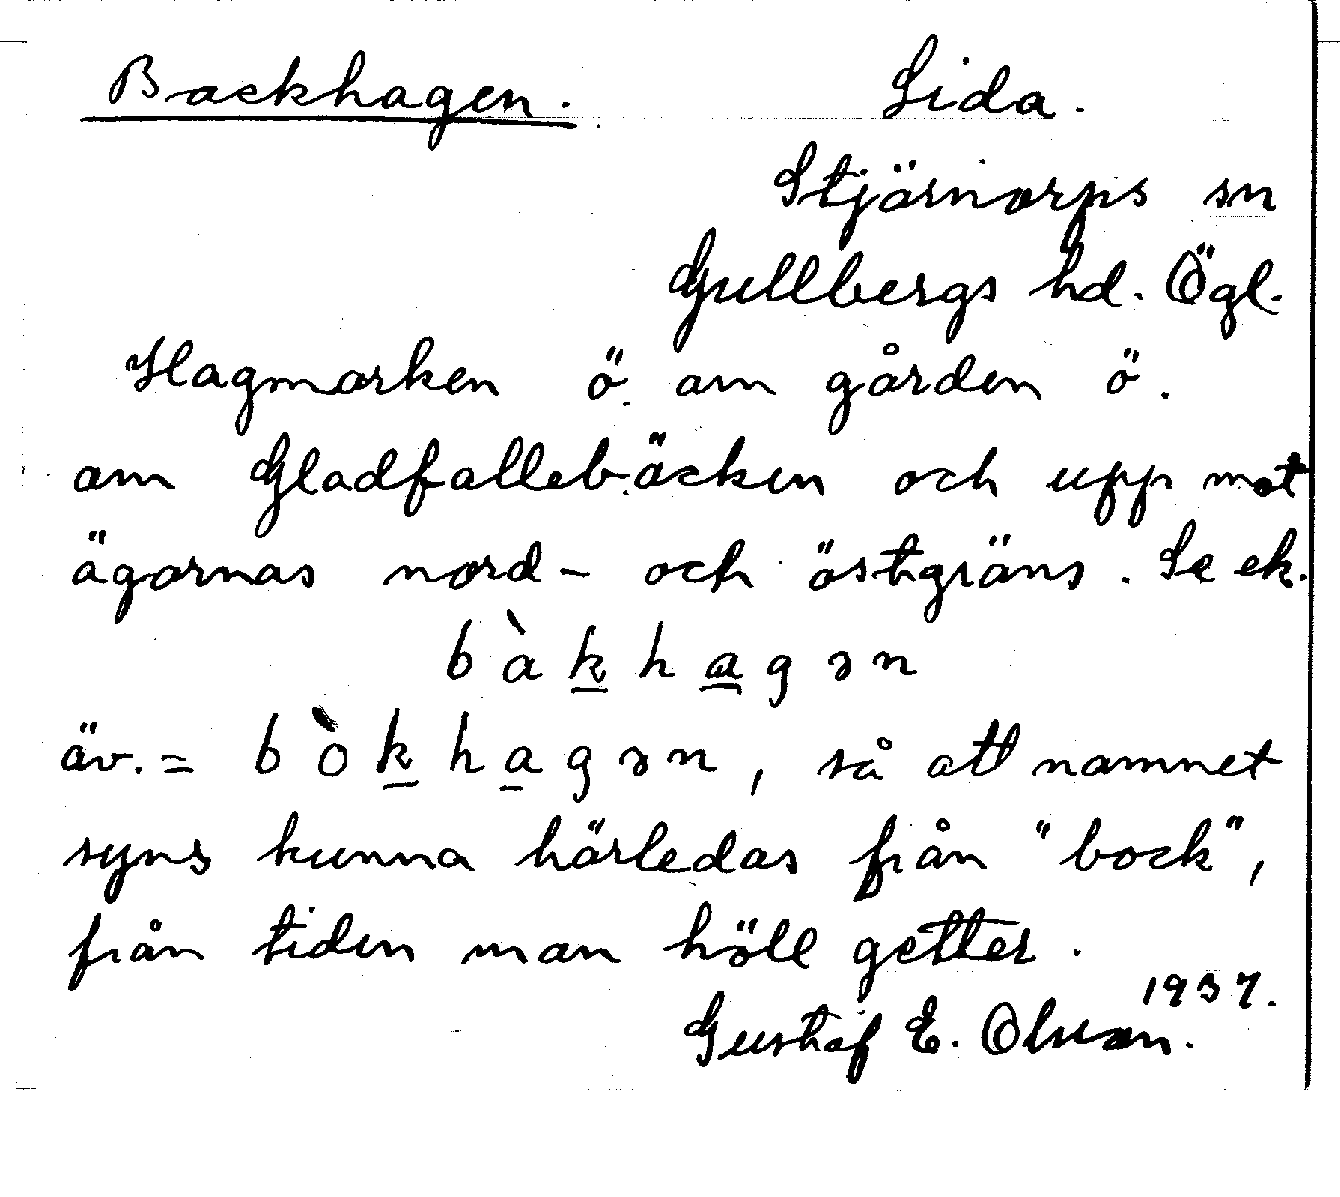 Backhagen. Sida.
Stjärnorps sn
Gullbergs hd. Ögl.
Hagmarken ö. om gården ö.
om Gladfallebäcken och upp mot
ägornas nord- och östgräns. Se ek.
bàkhagən
äv. = bòkhagən, så att namnet
syns kunna härledas från "bock",
från tiden man höll getter.
1937.
Gustaf E. Olsson.